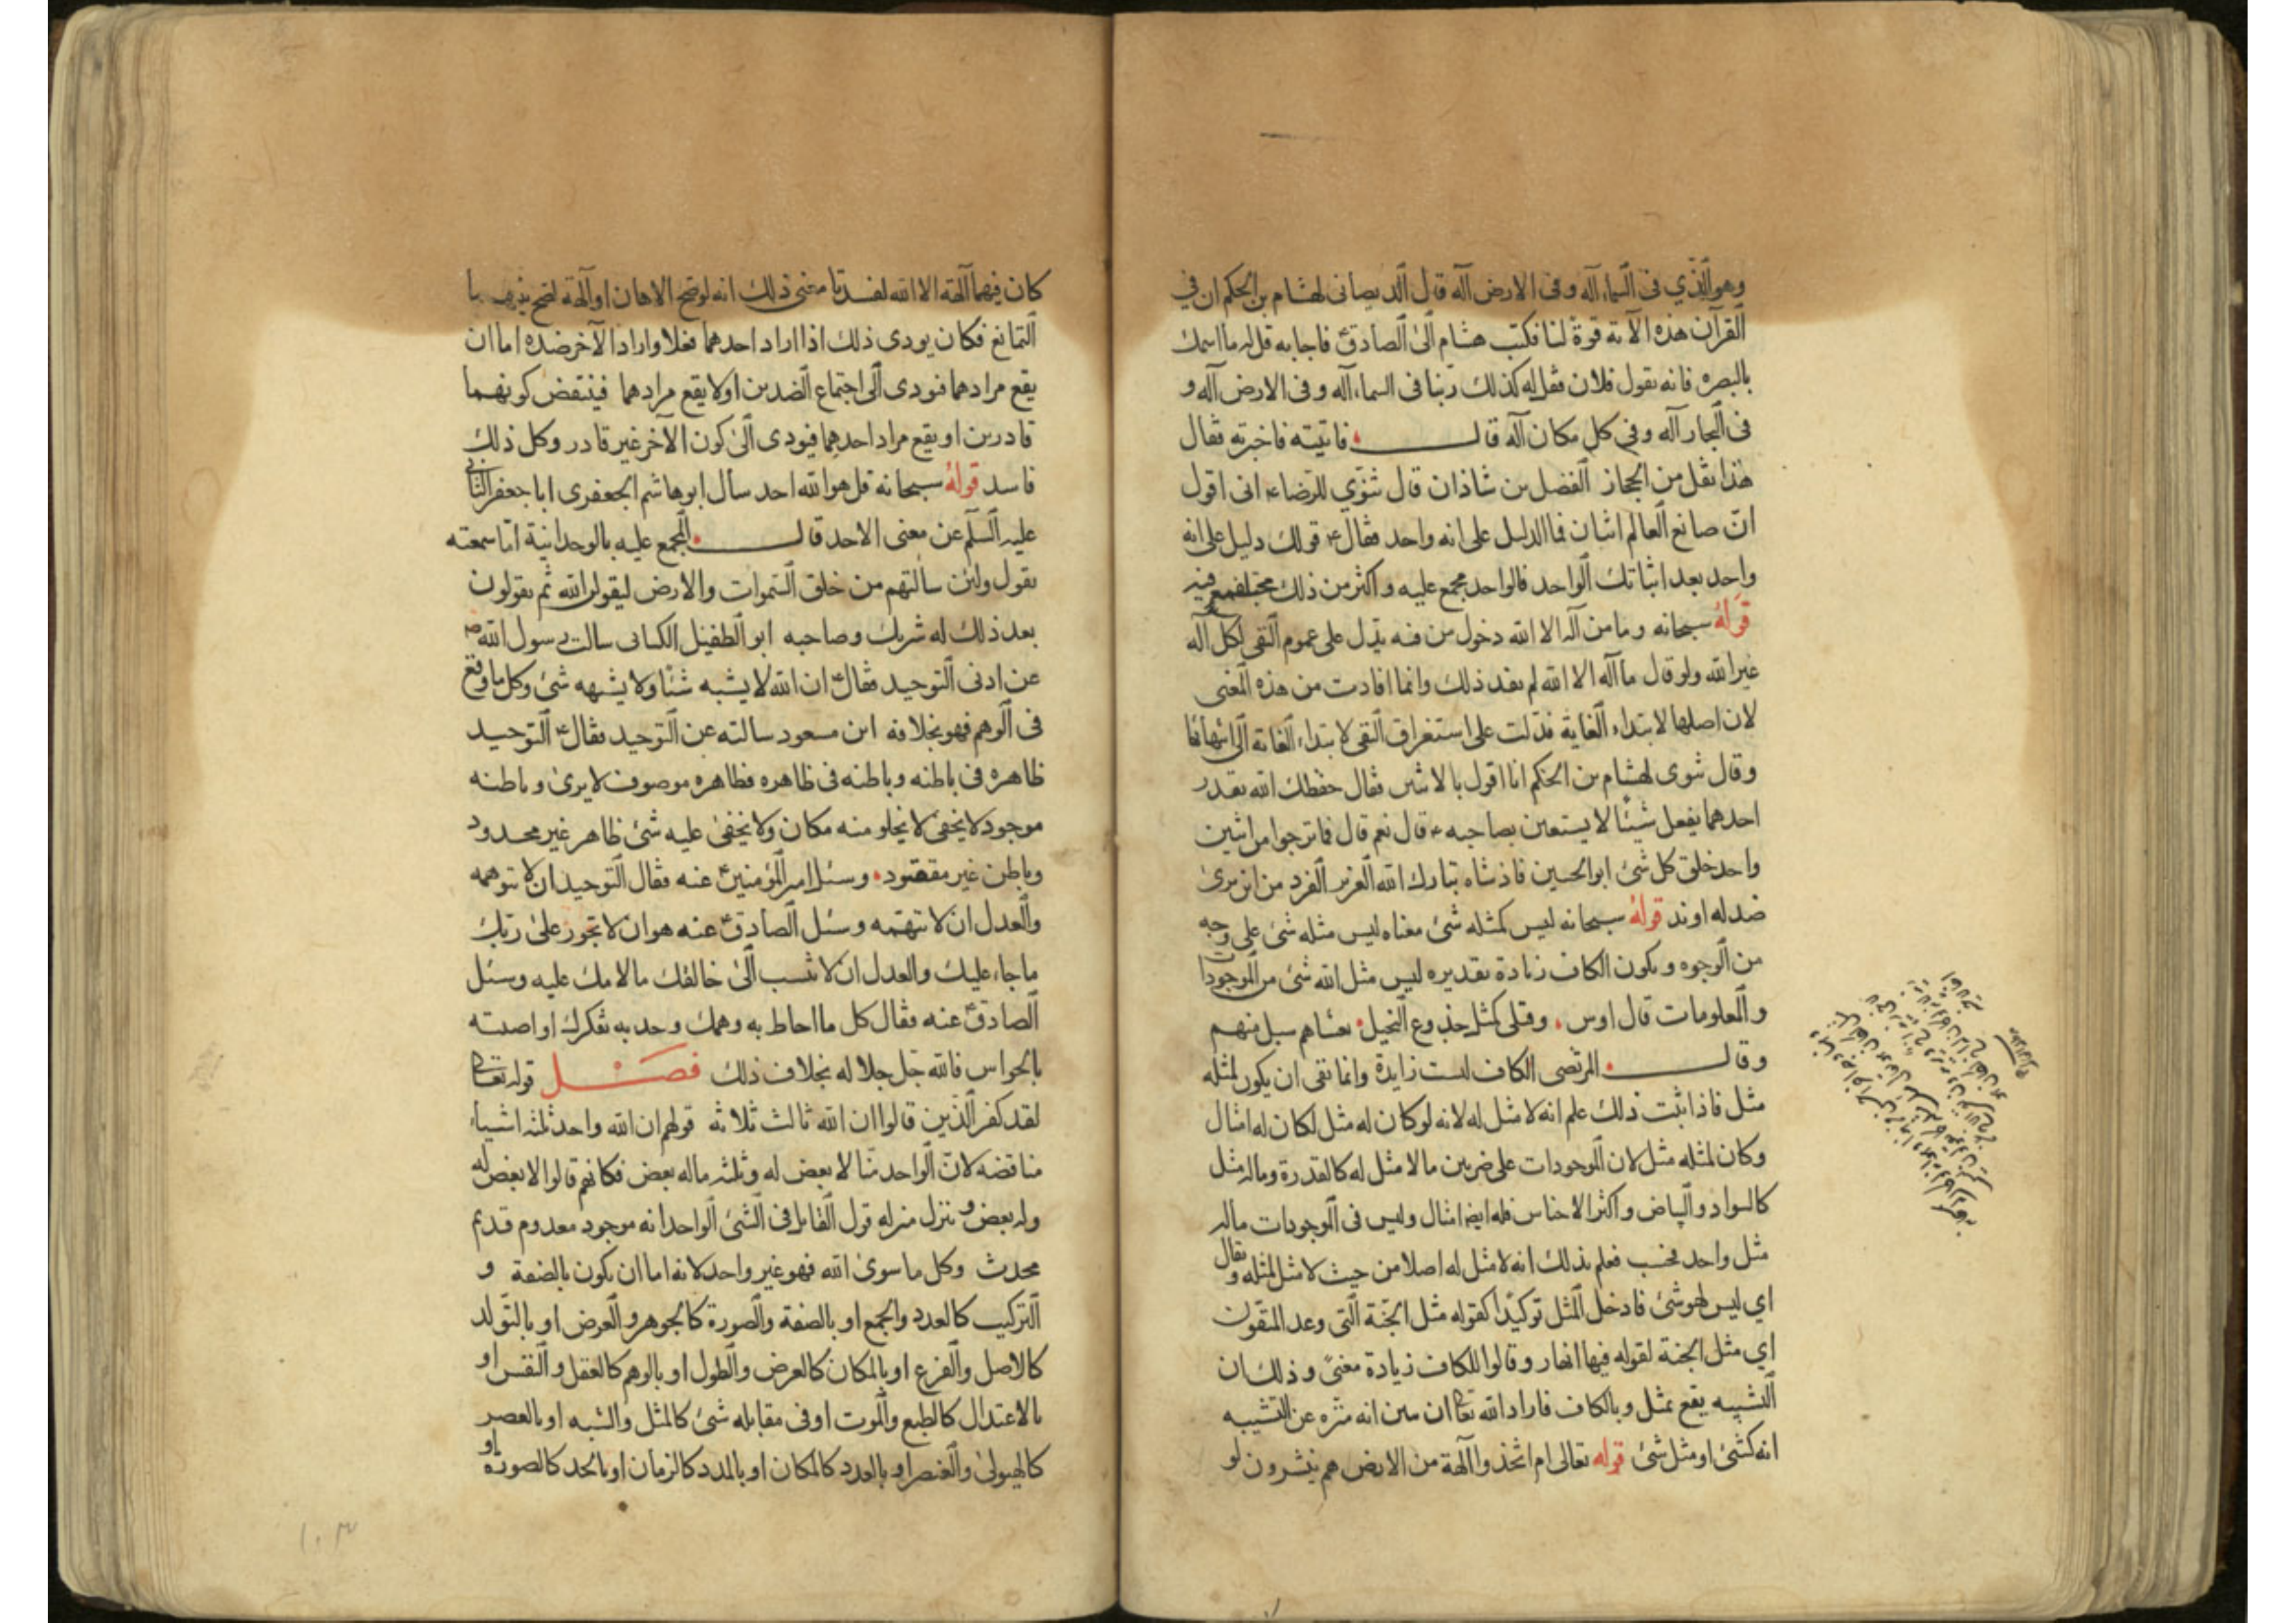 وهو الذي فى السماء اله وفى الارض اله قال الديصانى لهشام بن الحكم ان في
القرآن هذه الآية قوة لنا فكتب هشام الى الصادق ع فاجابه قل له ما اسمك
بالبصرة فانه يقول فلان فقل له كذلك ربنا فى السماء اله وفى الارض اله و
فى البحار اله وفى كل مكان اله قال فاتيته فاخبرته فقال
هذا نقل من الحجاز الفضل بن شاذان قال ثنوي للرضا ع انى اقول
ان صانع العالم اثنان فما الدليل على انه واحد فقال ع قولك دليل على انه
واحد بعد اثباتك الواحد فالواحد مجمع عليه واكثر من ذلك مختلف فيه
قوله سبحانه وما من اله الا الله دخول من فيه يدل على عموم النفى لكل اله
غير الله ولو قال ما اله الا الله لم يفد ذلك وانما افادت من هذه المعنى
لان اصلها لابتداء الغاية فدلت على استغراق النفى لابتداء الغاية الى انتهائها
وقال ثنوى لهشام بن الحكم انا اقول بالاثنين فقال حفظك الله يقدر
احدهما يفعل شيئا لا يستعين بصاحبه قال نعم قال فما ترجوا من اثنين
واحد خلق كل شئ ابو الحسين فاذشاه تبارك الله العزيز الفرد من ان يرى
ضد له او ند قوله سبحانه ليس كمثله شئ معناه ليس مثله شئ على وجه
من الوجوه ويكون الكاف زيادة تقديره ليس مثل الله شئ من الموجودات
والمعلومات قال اوس وقتلى كمثل جذوع النخيل تغشاهم سبل منهمر
وقال المرتضى الكاف ليست زايدة وانما نفى ان يكون لمثله
مثل فاذا ثبت ذلك علم انه لا مثل له لانه لو كان له مثل لكان له امثال
وكان لمثله مثل لان الموجودات على ضربين ما لا مثل له كالقدرة وما له مثل
كالسواد والبياض واكثر الاجناس فله ايضا امثال وليس فى الموجودات ماله
مثل واحد فحسب فعلم بذلك انه لا مثل له اصلا من حيث لا مثل لمثله ويقال
اي ليس لهو شئ فادخل المثل توكيدا كقوله مثل الجنة التى وعد المتقون
اي مثل الجنة لقوله فيها انهار وقالوا للكاف زيادة معنى وذلك ان
التشبيه يقع بمثل وبالكاف فاراد الله تعا ان يبين انه منزه عن التشبيه
انه كشئ او مثل شئ قوله تعالى ام اتخذوا آلهة من الارض هم ينشرون لو
كان فيهما آلهة الا الله لفسدتا معنى ذلك انه لو صح الالهان او آلهة لصح بينهما
التمانع فكان يودى ذلك اذا اراد احدهما فعلا واراد الآخر ضده اما ان
يقع مرادهما فيودى الى اجتماع الضدين او لا يقع مرادهما فينقض كونهما
قادرين او يقع مراد احدهما فيودى الى كون الآخر غير قادر وكل ذلك
فاسد قوله سبحانه قل هو الله احد سأل ابو هاشم الجعفرى ابا جعفر الثانى
عليه السلم عن معنى الاحد قال المجمع عليه بالوحدانية اما سمعته
يقول ولئن سالتهم من خلق السموات والارض ليقولن الله ثم يقولون
بعد ذلك له شريك وصاحبه ابو الطفيل الكنانى سالت رسول الله ص
عن ادنى التوحيد فقال ع ان الله لا يشبه شئا ولا يشبهه شئ وكل ما وقع
فى الوهم فهو بخلافه ابن مسعود سالته عن التوحيد فقال ع التوحيد
ظاهره فى باطنه وباطنه فى ظاهره فظاهره موصوف لا يرى وباطنه
موجود لا يخفى لا يخلو منه مكان ولا يخفى عليه شئ ظاهر غير محدود
وباطن غير مفقود وسئل امير المؤمنين ع عنه فقال التوحيد ان لا تتوهمه
والعدل ان لا تتهمه وسئل الصادق ع عنه هو ان لا تجوز على ربك
ما جاء عليك والعدل ان لا تنسب الى خالقك ما لامك عليه وسئل
الصادق ع عنه فقال كل ما احاط به وهمك وحد به تفكرك او اصبته
بالحواس فالله جل جلاله بخلاف ذلك فصل قوله تعا
لقد كفر الذين قالوا ان الله ثالث ثلاثة قولهم ان الله واحد ثلثة اشياء
مناقضه لان الواحد منا لا بعض له وثلثه ماله بعض فكانهم قالوا لا بعض له
وله بعض وتنزل منزله قول القايل فى الشئ الواحد انه موجود معدوم قديم
محدث وكل ما سوى الله فهو غير واحد لانه اما ان يكون بالصنعة و
التركيب كالعدد والجمع او بالصفة والصورة كالجوهر والعرض او بالتولد
كالاصل والفرع او بالمكان كالعرض والطول او بالوهم كالعقل والنفس او
بالاعتدال كالطبع والموت او فى مقابله شئ كالمثل والشبه او بالعصر
كالهيولى والعنصر او بالعدد كالمكان او بالمدد كالزمان او بالحد كالصورة او
١٠٣